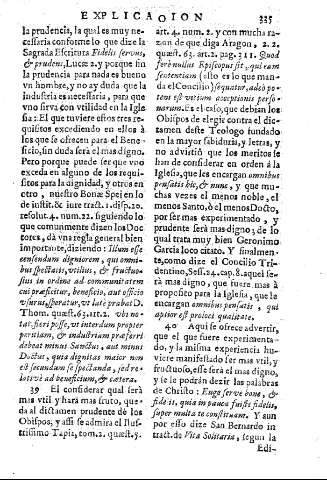 EXPLICACION
335
la prudencia, la qual es muy ne-
cessaria conforme lo que dize la
Sagrada Escritura Fidelis servus,
& prudens, Lucæ 2. y porque sin
la prudencia para nada es bueno
vn hombre, y no ay duda que la
industria es necessaria, para que
vno sirva con vtilidad en la Igle
sia: El que tuviere estos tres re-
quisitos excediendo en ellos à
los que se ofrecen para el Bene-
ficio, sin duda será el mas digno.
Pero porque puede ser que vno
exceda en alguno de los requi-
sitos para la dignidad, y otros en
otro, nuestro Bonæ Spei en lo
de iustit. & iure tract. 1. disp. 20.
resolut. 4. num. 22. siguiendo lo
que comunmente dizen los Doc-
tores, dá vna regla general bien
importante, diziendo: Illum esse
censendum digniorem, qui omni-
bus spectatis, vtilius, & fructuo-
sius in ordine ad communitatem
cui præficitur, beneficio, aut officio
vsurus, speratur, vt late probat D.
Thom. quæst. 63. art. 2. vbi no-
tat, fieri posse, vt interdum propter
peritiam, & industriam præferri
debeat minus Sanctus, aut minus
Doctus, quia dignitas maior non
est secundum se spectanda, sed re-
lativè ad beneficium, & cætera.
39 El considerar qual será
mas vtil y hará mas fruto, que-
da al dictamen prudente de los
Obispos, y assi se admira el Ilus-
trissimo Tapia, tom. 2. quæst. 7.
art. 4. num. 2. y con mucha ra-
zon de que diga Aragon, 2. 2.
quæst. 63. art. 2. pag. 311. Quod
ferè nullus Episcopus sit, qui eam
sententiam (esto es lo que man-
da el Concilio) sequatur, adeò po-
tens est vitium acceptionis perso-
narum. Es el caso, que debian los
Obispos de elegir contra el dic-
tamen deste Teologo fundado
en la mayor sabiduria, y letras, y
no advirtiò que los meritos se
han de considerar en orden á la
Iglesia, que les encargan omnibus
pensatis hic, & nunc, y que mu-
chas vezes el menos noble, el
menos Santo, ò el menos Docto,
por ser mas experimentado, y
prudente será mas digno; de lo
qual trata muy bien Geronimo
Garcia loco citato. Y finalmen-
te, como dize el Concilio Tri-
dentino, Sess. 24. cap. 8. aquel se-
rá mas digno, que fuere mas à
proposito para la Iglesia, que le
encargan omnibus pensatis, qui
aptior est proiect qualitate.
40 Aqui se ofrece advertir,
que el que fuere experimenta-
do, y la misma experiencia hu-
viere manifestado ser mas vtil, y
fructuoso, esse será el mas digno,
y se le podrán dezir las palabras
de Christo: Euge serve bone, &
fidelis, quia in pauca fuisti fidelis,
super multa te constituam. Y aun
por esso dize San Bernardo in
tract. de Vita Solitaria, segun la
Edi-